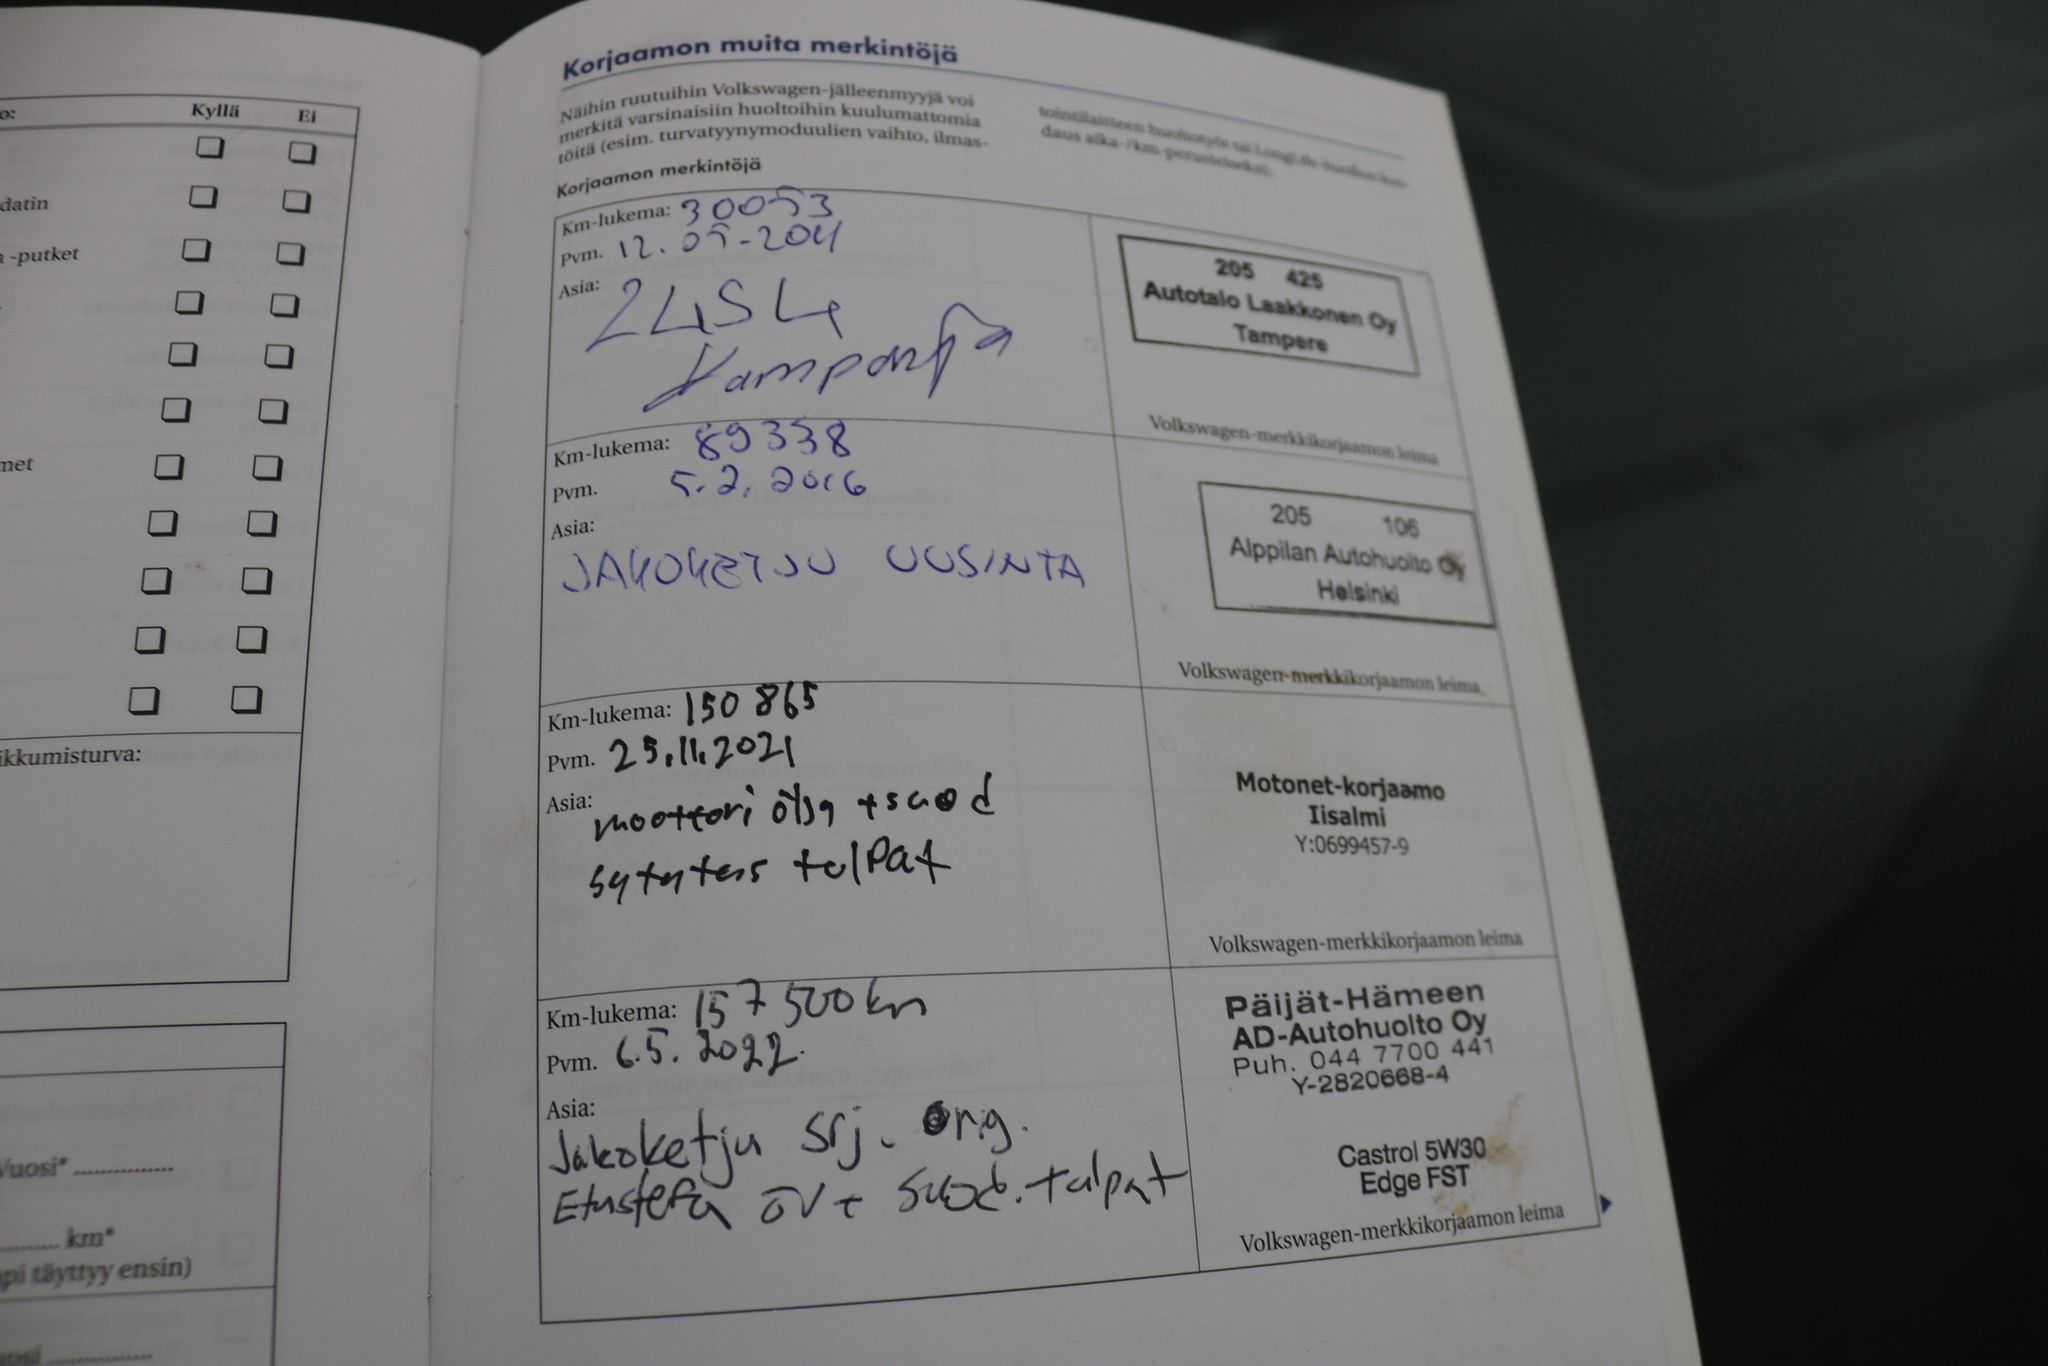 o:
Kyllä
Ei
datin
a -putket
met
ikkumisturva:
Vuosi* ...............
.......... km*
pi täyttyy ensin)
uosi ...............
Korjaamon muita merkintöjä
Näihin ruutuihin Volkswagen-jälleenmyyjä voi
merkitä varsinaisiin huoltoihin kuulumattomia
töitä (esim. turvatyynymoduulien vaihto, ilmas-
tointilaitteen huoltotyöt tai LongLife-huollon
daus aika-/km-perusteiseksi).
Korjaamon merkintöjä
Km-lukema: 30053
Pvm. 12.05-2011
Asia: 24S4
Kampanja
205 425
Autotalo Laakkonen Oy
Tampere
Volkswagen-merkkikorjaamon leima
Km-lukema: 89338
Pvm. 5.2.2016
Asia:
JAKOKETJU UUSINTA
205 106
Alppilan Autohuolto Oy
Helsinki
Volkswagen-merkkikorjaamon leima
Km-lukema: 150 865
Pvm. 25.11.2021
Asia: moottori öljy + suod
sytytys tulpat
Motonet-korjaamo
Iisalmi
Y:0699457-9
Volkswagen-merkkikorjaamon leima
Km-lukema: 157 500 km
Pvm. 6.5.2022.
Asia:
Jakoketju srj. orig.
ÖV + suod. tulpat
Päijät-Hämeen
AD-Autohuolto Oy
Puh. 044 7700 441
Y-2820668-4
Castrol 5W30
Edge FST
Volkswagen-merkkikorjaamon leima